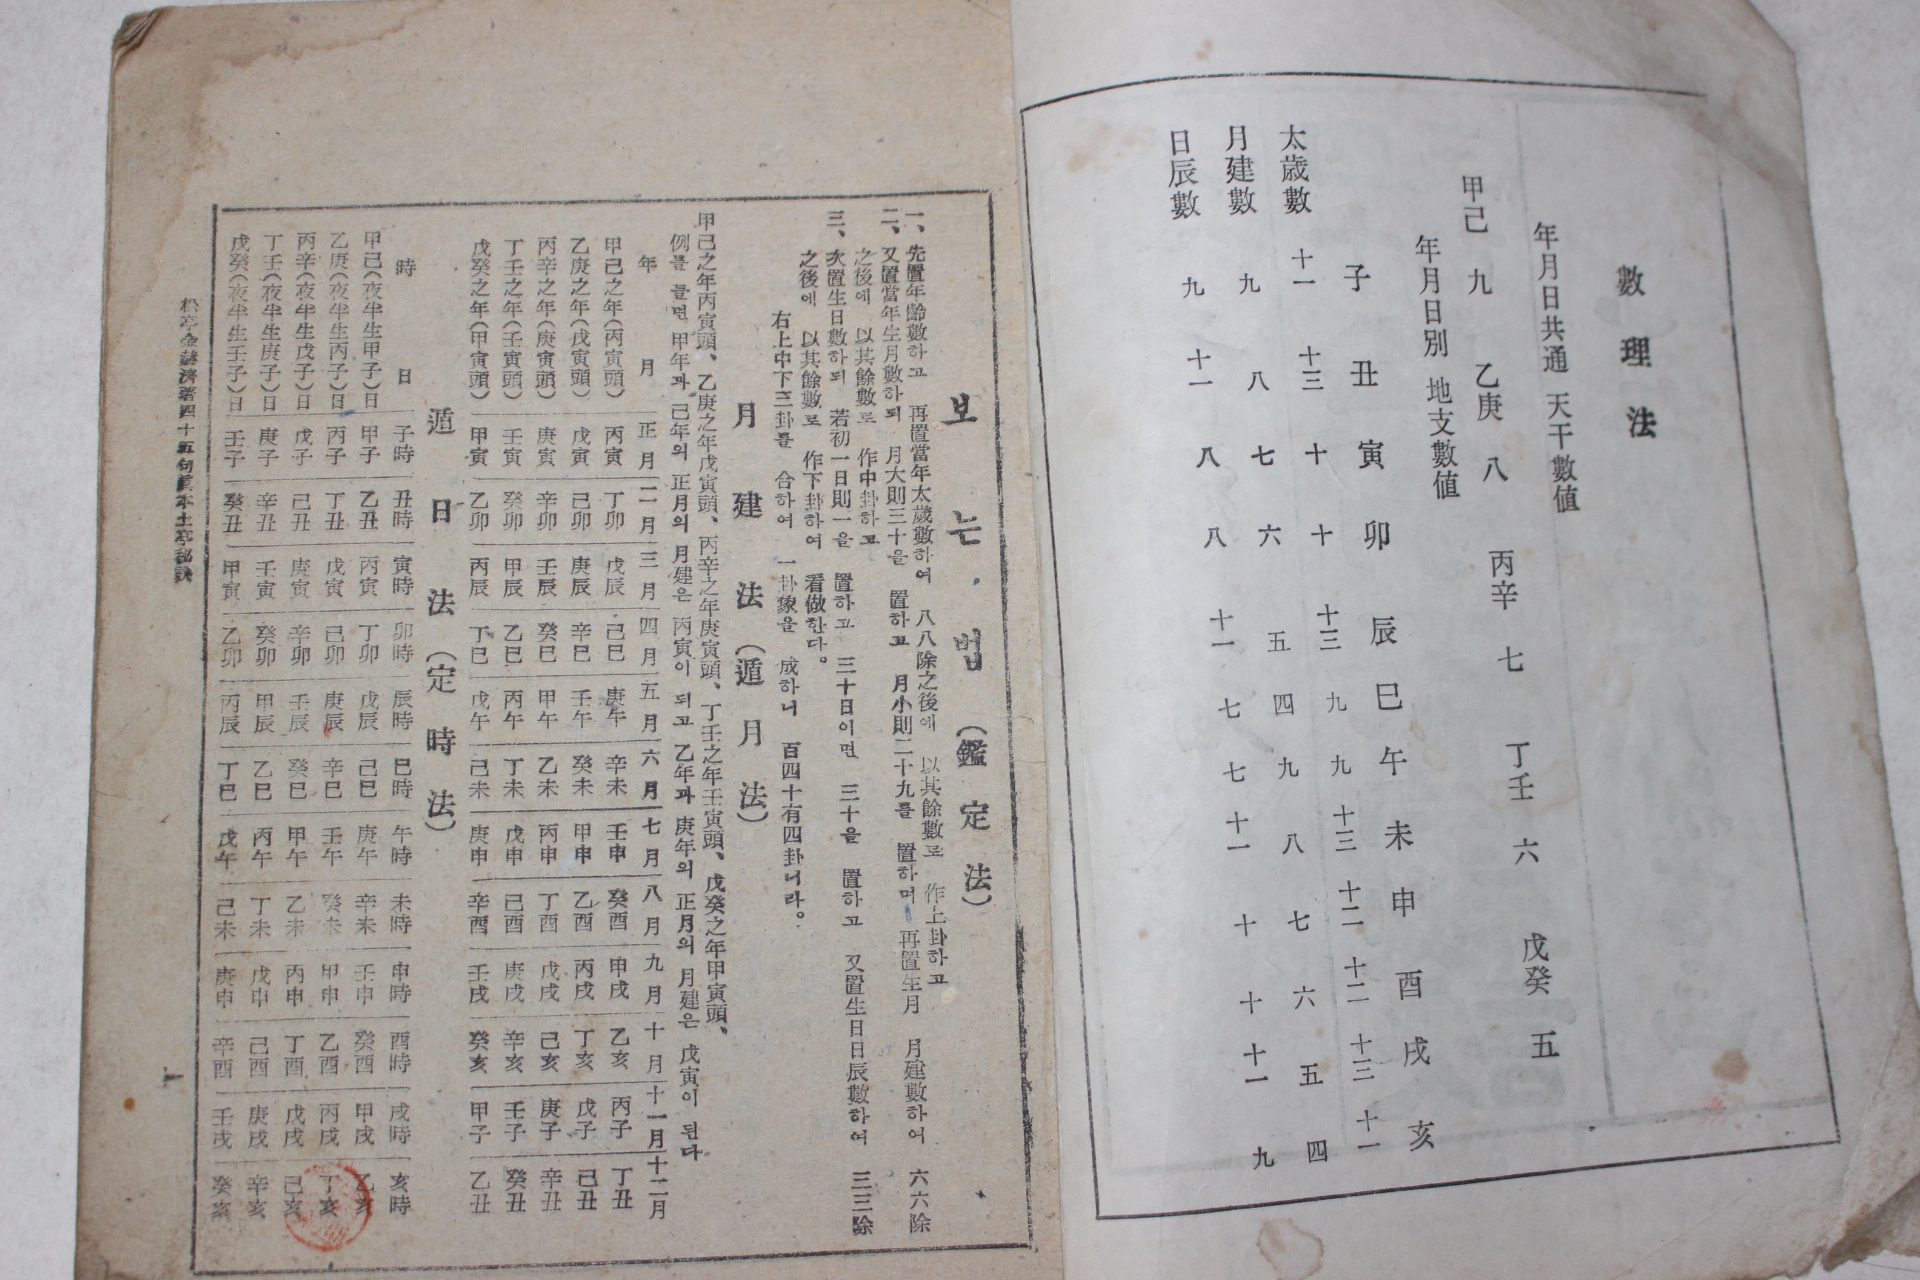 數理法
年月日共通 天干數値
甲己 九 乙庚 八 丙辛 七 丁壬 六 戊癸 五
年月日別 地支數値
子 丑 寅 卯 辰 巳 午 未 申 酉 戌 亥
太歲數 十一 十三 十 十 十三 九 九 十三 十二 十二 十三 十一
月建數 九 八 七 六 五 四 九 八 七 六 五 四
日辰數 九 十一 八 八 十一 七 七 十一 十 十 十一 九
보는법 (鑑定法)
一、先置年齡數하고 再置當年太歲數하여 八八除之後에 以其餘數로 作上卦하고
二、又置當年生月數하되 月大則三十을 置하고 月小則二十九를 置하며 再置生月 月建數하여 六六除
之後에 以其餘數로 作中卦하고
三、次置生日數하되 若初一日則一을 置하고 三十日이면 三十을 置하고 又置生日日辰數하여 三三除
之後에 以其餘數로 作下卦하여 看做한다。
右上中下三卦를 合하여 一卦象을 成하니 百四十有四卦니라。
月建法 (遁月法)
甲己之年丙寅頭、乙庚之年戊寅頭、丙辛之年庚寅頭、丁壬之年壬寅頭、戊癸之年甲寅頭、
例를 들면 甲年과 己年의 正月의 月建은 丙寅이 되고 乙年과 庚年의 正月의 月建은 戊寅이 된다
年 月 正月 二月 三月 四月 五月 六月 七月 八月 九月 十月 十一月 十二月
甲己之年(丙寅頭) 丙寅 丁卯 戊辰 己巳 庚午 辛未 壬申 癸酉 甲戌 乙亥 丙子 丁丑
乙庚之年(戊寅頭) 戊寅 己卯 庚辰 辛巳 壬午 癸未 甲申 乙酉 丙戌 丁亥 戊子 己丑
丙辛之年(庚寅頭) 庚寅 辛卯 壬辰 癸巳 甲午 乙未 丙申 丁酉 戊戌 己亥 庚子 辛丑
丁壬之年(壬寅頭) 壬寅 癸卯 甲辰 乙巳 丙午 丁未 戊申 己酉 庚戌 辛亥 壬子 癸丑
戊癸之年(甲寅頭) 甲寅 乙卯 丙辰 丁巳 戊午 己未 庚申 辛酉 壬戌 癸亥 甲子 乙丑
遁日法 (定時法)
時 日 子時 丑時 寅時 卯時 辰時 巳時 午時 未時 申時 酉時 戌時 亥時
甲己(夜半生甲子)日 甲子 乙丑 丙寅 丁卯 戊辰 己巳 庚午 辛未 壬申 癸酉 甲戌 乙亥
乙庚(夜半生丙子)日 丙子 丁丑 戊寅 己卯 庚辰 辛巳 壬午 癸未 甲申 乙酉 丙戌 丁亥
丙辛(夜半生戊子)日 戊子 己丑 庚寅 辛卯 壬辰 癸巳 甲午 乙未 丙申 丁酉 戊戌 己亥
丁壬(夜半生庚子)日 庚子 辛丑 壬寅 癸卯 甲辰 乙巳 丙午 丁未 戊申 己酉 庚戌 辛亥
戊癸(夜半生壬子)日 壬子 癸丑 甲寅 乙卯 丙辰 丁巳 戊午 己未 庚申 辛酉 壬戌 癸亥
松亭金赫濟著四十五句眞本土亭秘訣
一